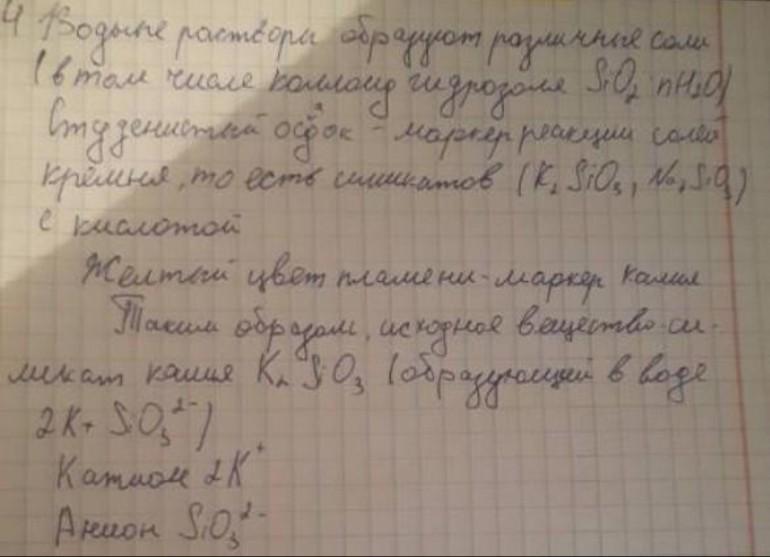 4 Водные растворы образуют различные соли
(в том числе коллоид гидрозоля SiO₂ · nH₂O)
Студенистый осадок - маркер реакции солей
кремния, то есть силикатов (K₂SiO₃, Na₂SiO₃)
с кислотой
Желтый цвет пламени - маркер калия
Таким образом, исходное вещество - си-
ликат калия K₂SiO₃ (образующий в воде
2K+ SiO₃²⁻)
Катион 2K⁺
Анион SiO₃²⁻